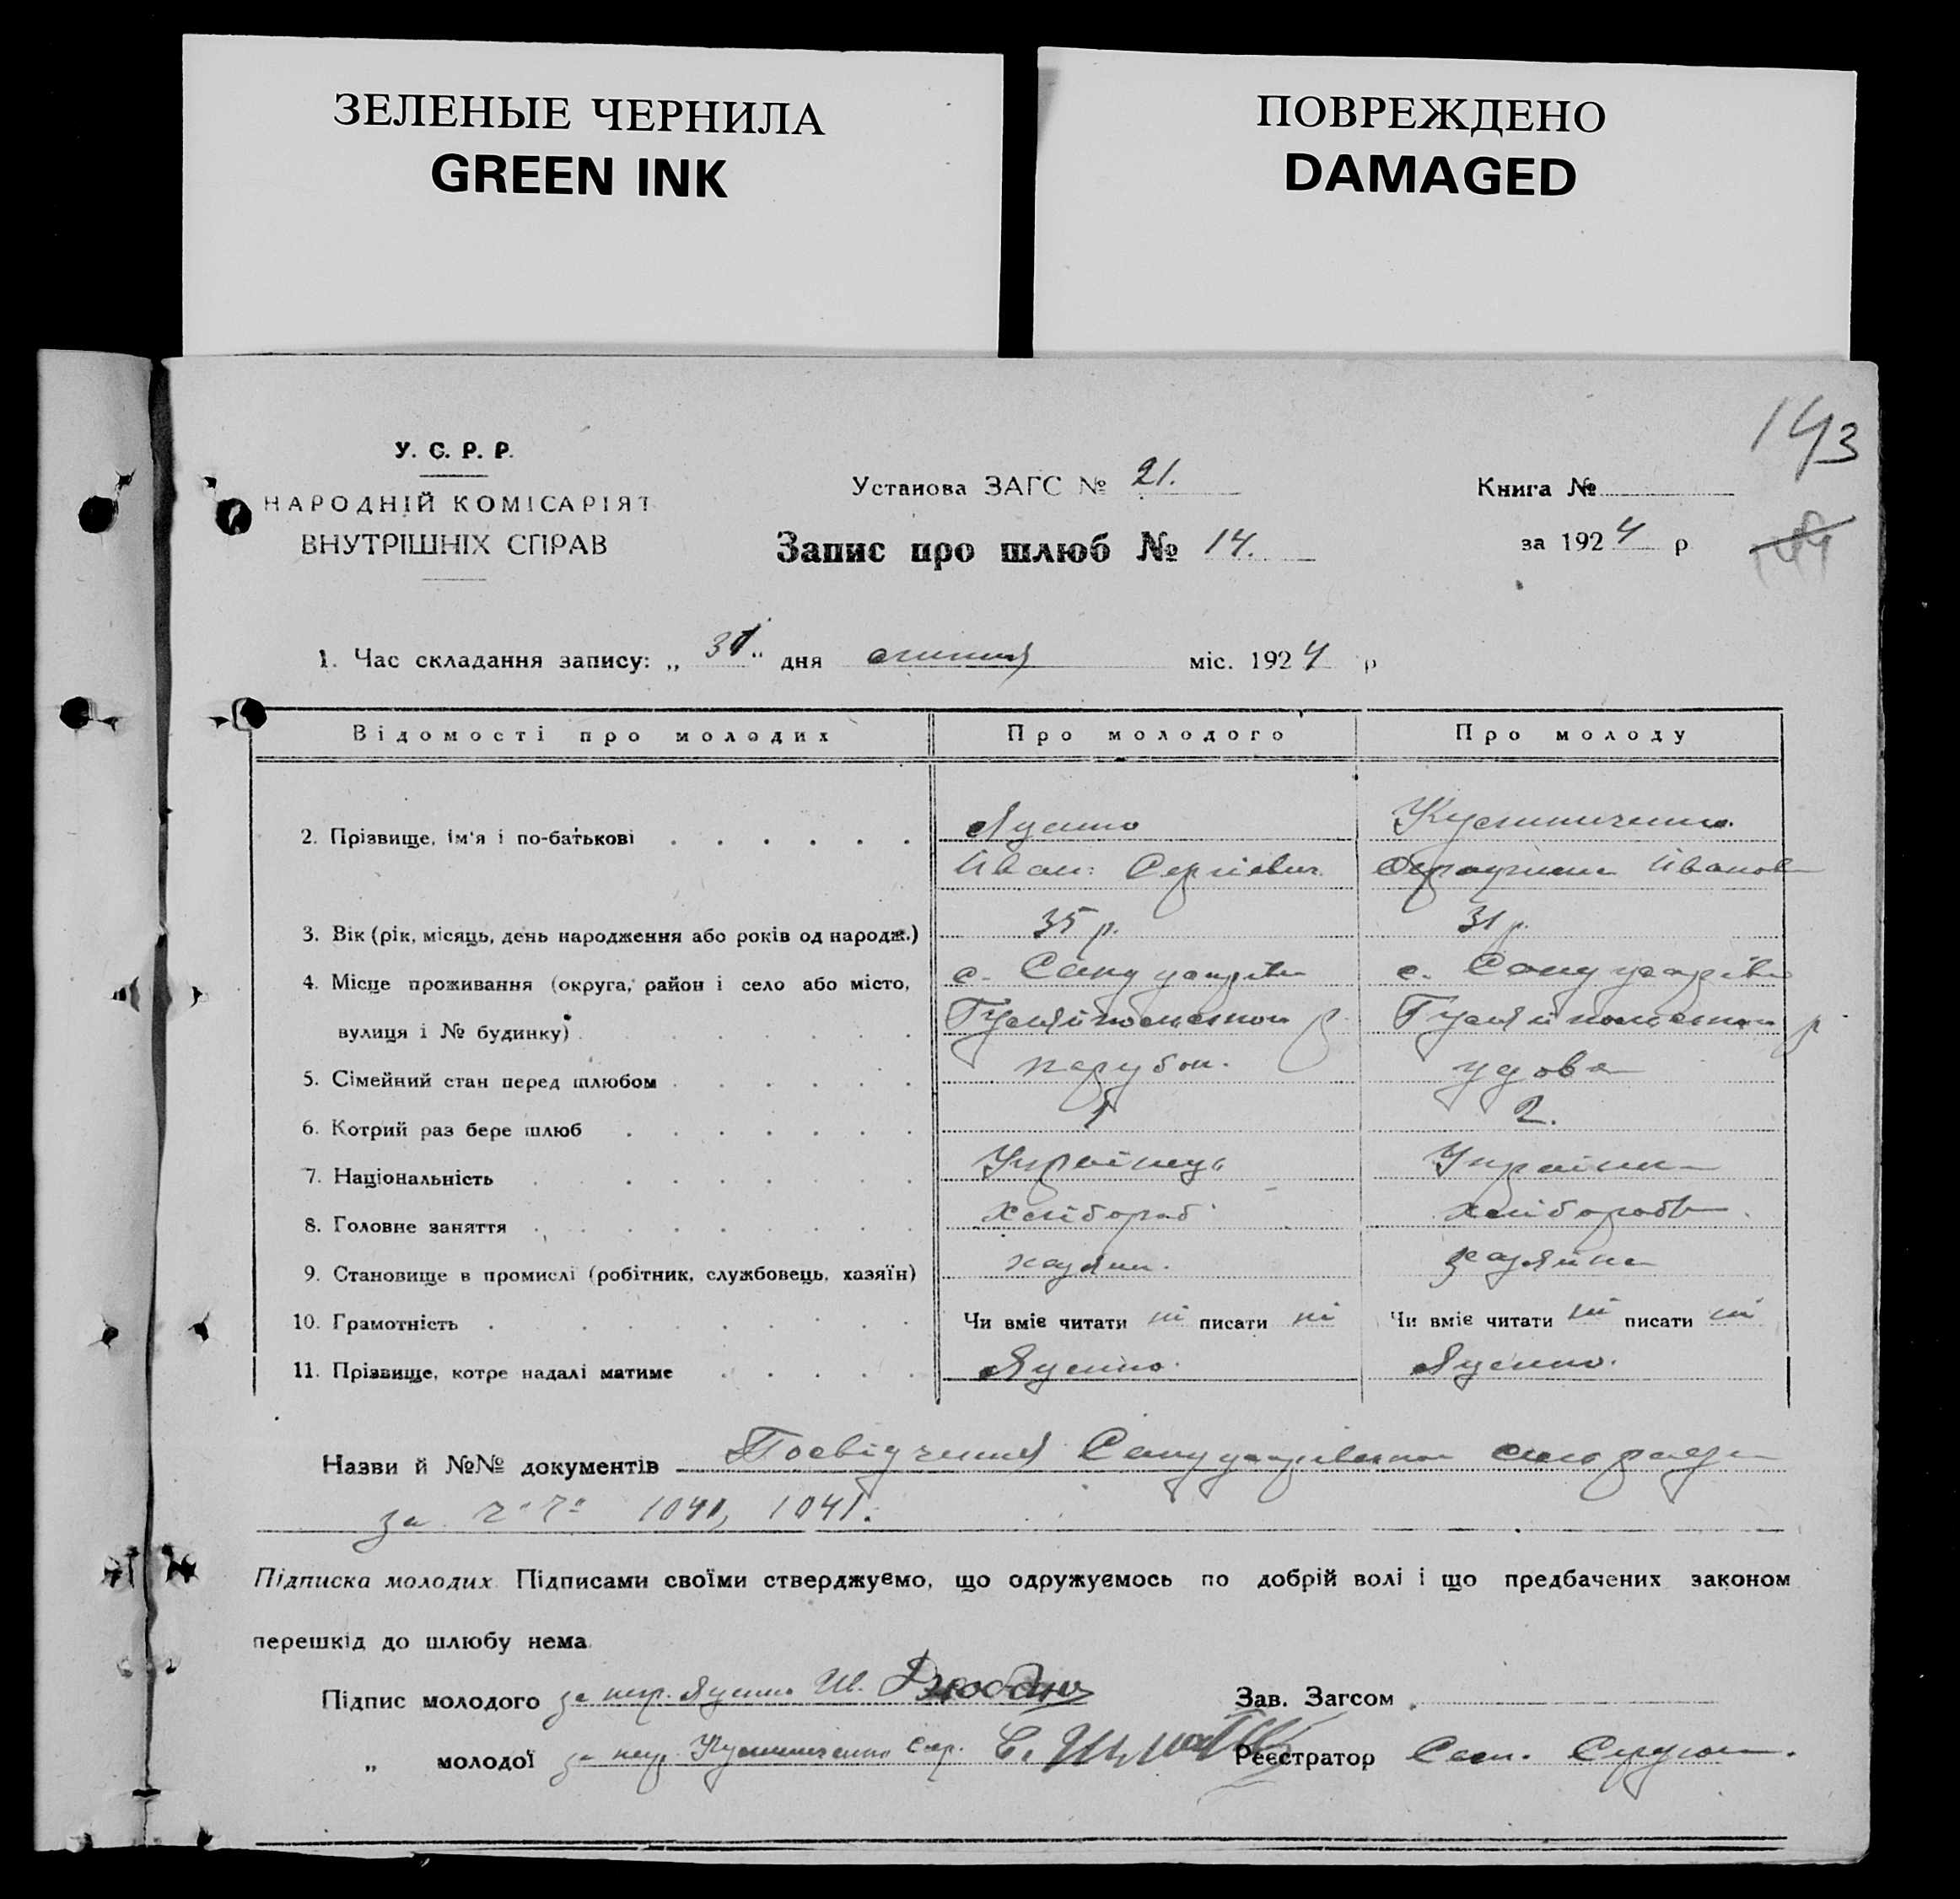 ЗЕЛЕНЫЕ ЧЕРНИЛА
GREEN INK
ПОВРЕЖДЕНО
DAMAGED
143
У. С. Р. Р.
НАРОДНІЙ КОМІСАРІЯТ
ВНУТРІШНІХ СПРАВ
Установа ЗАГС № 21.
Запис про шлюб № 14.
Книга №
за 1924 р
1. Час складання запису: „ 31 " дня міс. 1924 р
Відомості про молодих Про молодого Про молоду
2. Прізвище, ім'я і по-батькові Яценко
Иван Сергієвич
3. Вік (рік, місяць, день народження або років од народж.) 35 р. 31 р.
4. Місце проживання (округа, район і село або місто, с. с.
вулиця і № будинку) Гуляйпольского р. Гуляйпольского р
5. Сімейний стан перед шлюбом парубок. удова
6. Котрий раз бере шлюб 1 2.
7. Національність Українець Українка
8. Головне заняття хлібороб хліборобка
9. Становище в промислі (робітник, службовець, хазяїн) хазяин. хазяйка
10. Грамотність Чи вміє читати ні писати ні Чи вміє читати ні писати ні
11. Прізвище, котре надалі матиме Яценко. Яценко.
Назви й №№ документів Посвідчення сельради
за 1041, 1041.
Підписка молодих Підписами своїми стверджуємо, що одружуємось по добрій волі і що предбачених законом
перешкід до шлюбу нема
Підпис молодого за негр. Яценко Ив.
Зав. Загсом
„ молодої за негр.
Реєстратор